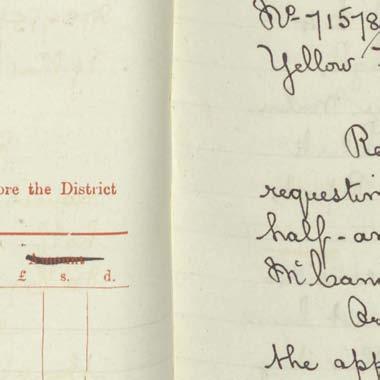 ore the District
£ s. d.
No 71578
Yellow
Re
requestin
half-an
McCam
the app